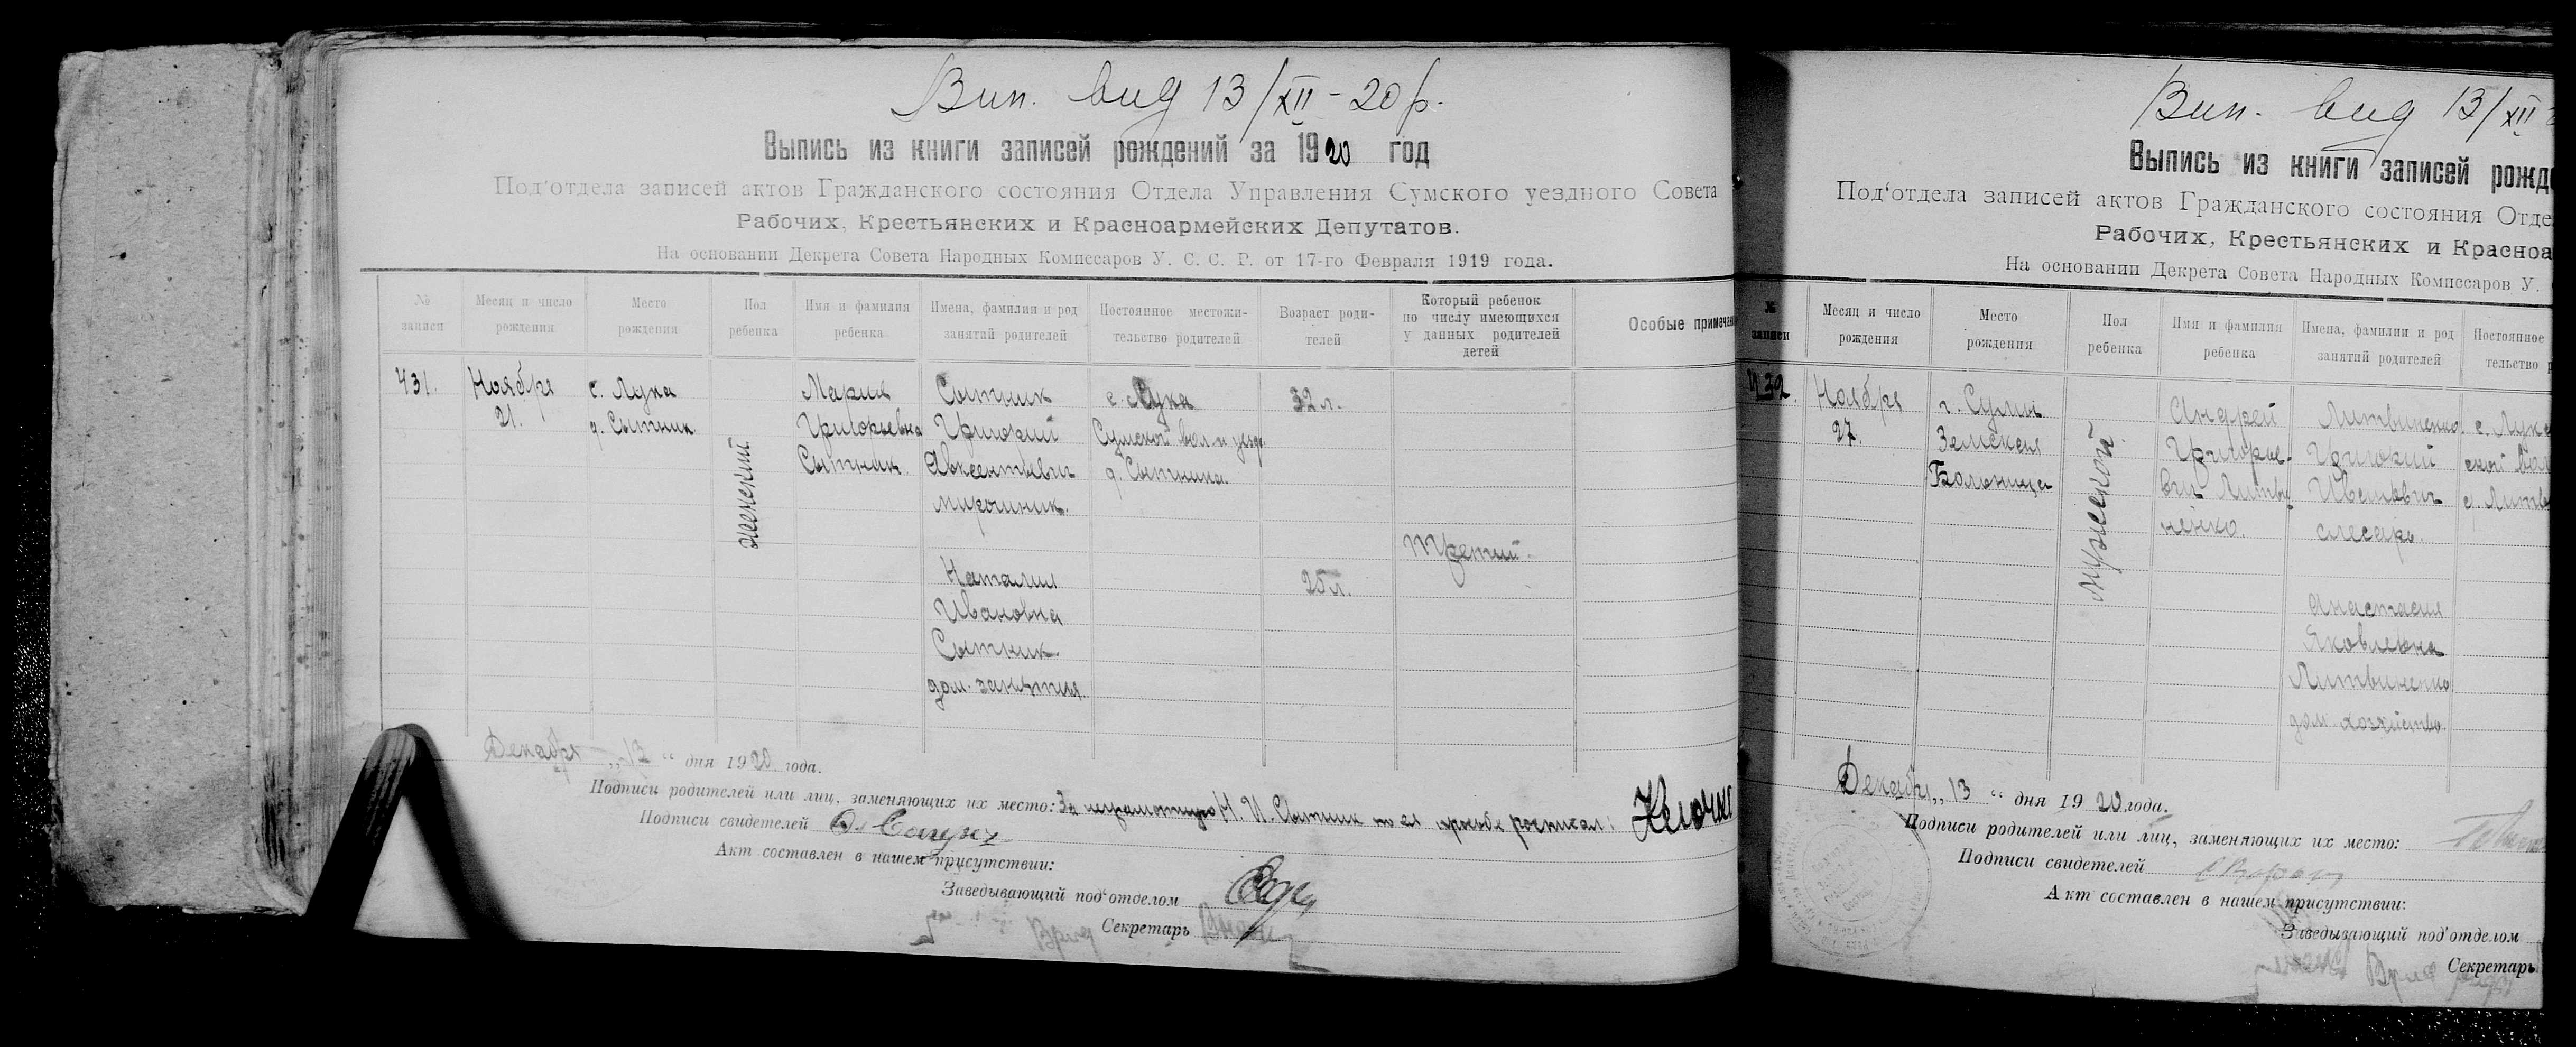 Вип. вид 13/XII-20 р.
Выпись из книги записей рождений за 1920 год
Под'отдела записей актов Гражданского состояния Отдела Управления Сумского уездного Совета
Рабочих, Крестьянских и Красноармейских Депутатов.
На основании Декрета Совета Народных Комиссаров У. С. С. Р. от 17-го Февраля 1919 года.
№ записи
Месяц и число рождения
Место рождения
Пол ребенка
Имя и фамилия ребенка
Имена, фамилии и род занятий родителей
Постоянное местожи-
тельство родителей
Возраст роди-
телей
Который ребенок
по числу имеющихся
у данных родителей
детей
Особые примечан
431.
Ноября
21.
с. Лука
д. Сытник
женский
Мария
Григорьевна
Сытник
Сытник
Григорий
Авксентьевич
мирошник.
Наталия
Ивановна
Сытник
дом. занятия
с. Лука
Сумской вол. и уезда
д. Сытника.
32 л.
25 л.
третий.
Декабря „13“ дня 1920 года.
Подписи родителей или лиц, заменяющих их место: За неграмотную Н. И. Сытник по ея просьбе росписал:
Подписи свидетелей
Акт составлен в нашем присутствии:
Заведывающий под'отделом
Секретарь
Вип. вид 13/XII
Выпись из книги записей рожд
Под'отдела записей актов Гражданского состояния Отде
Рабочих, Крестьянских и Красноа
На основании Декрета Совета Народных Комиссаров У.
№ записи
Месяц и число рождения
Место рождения
Пол ребенка
Имя и фамилия ребенка
Имена, фамилии и род занятий родителей
Постоянное
тельство р
432.
Ноября
27.
г. Сумы
Земская
Больница
мужской
Андрей
Григорье-
вич Литви-
ненко.
Литвиненко
Григорий
Иванович
слесарь.
Анастасия
Яковлевна
Литвиненко
дом. хозяйство.
с. Лука
Декабря „13“ дня 1920 года.
Подписи родителей или лиц, заменяющих их место:
Подписи свидетелей
Акт составлен в нашем присутствии:
Заведывающий под'отделом
Секретарь